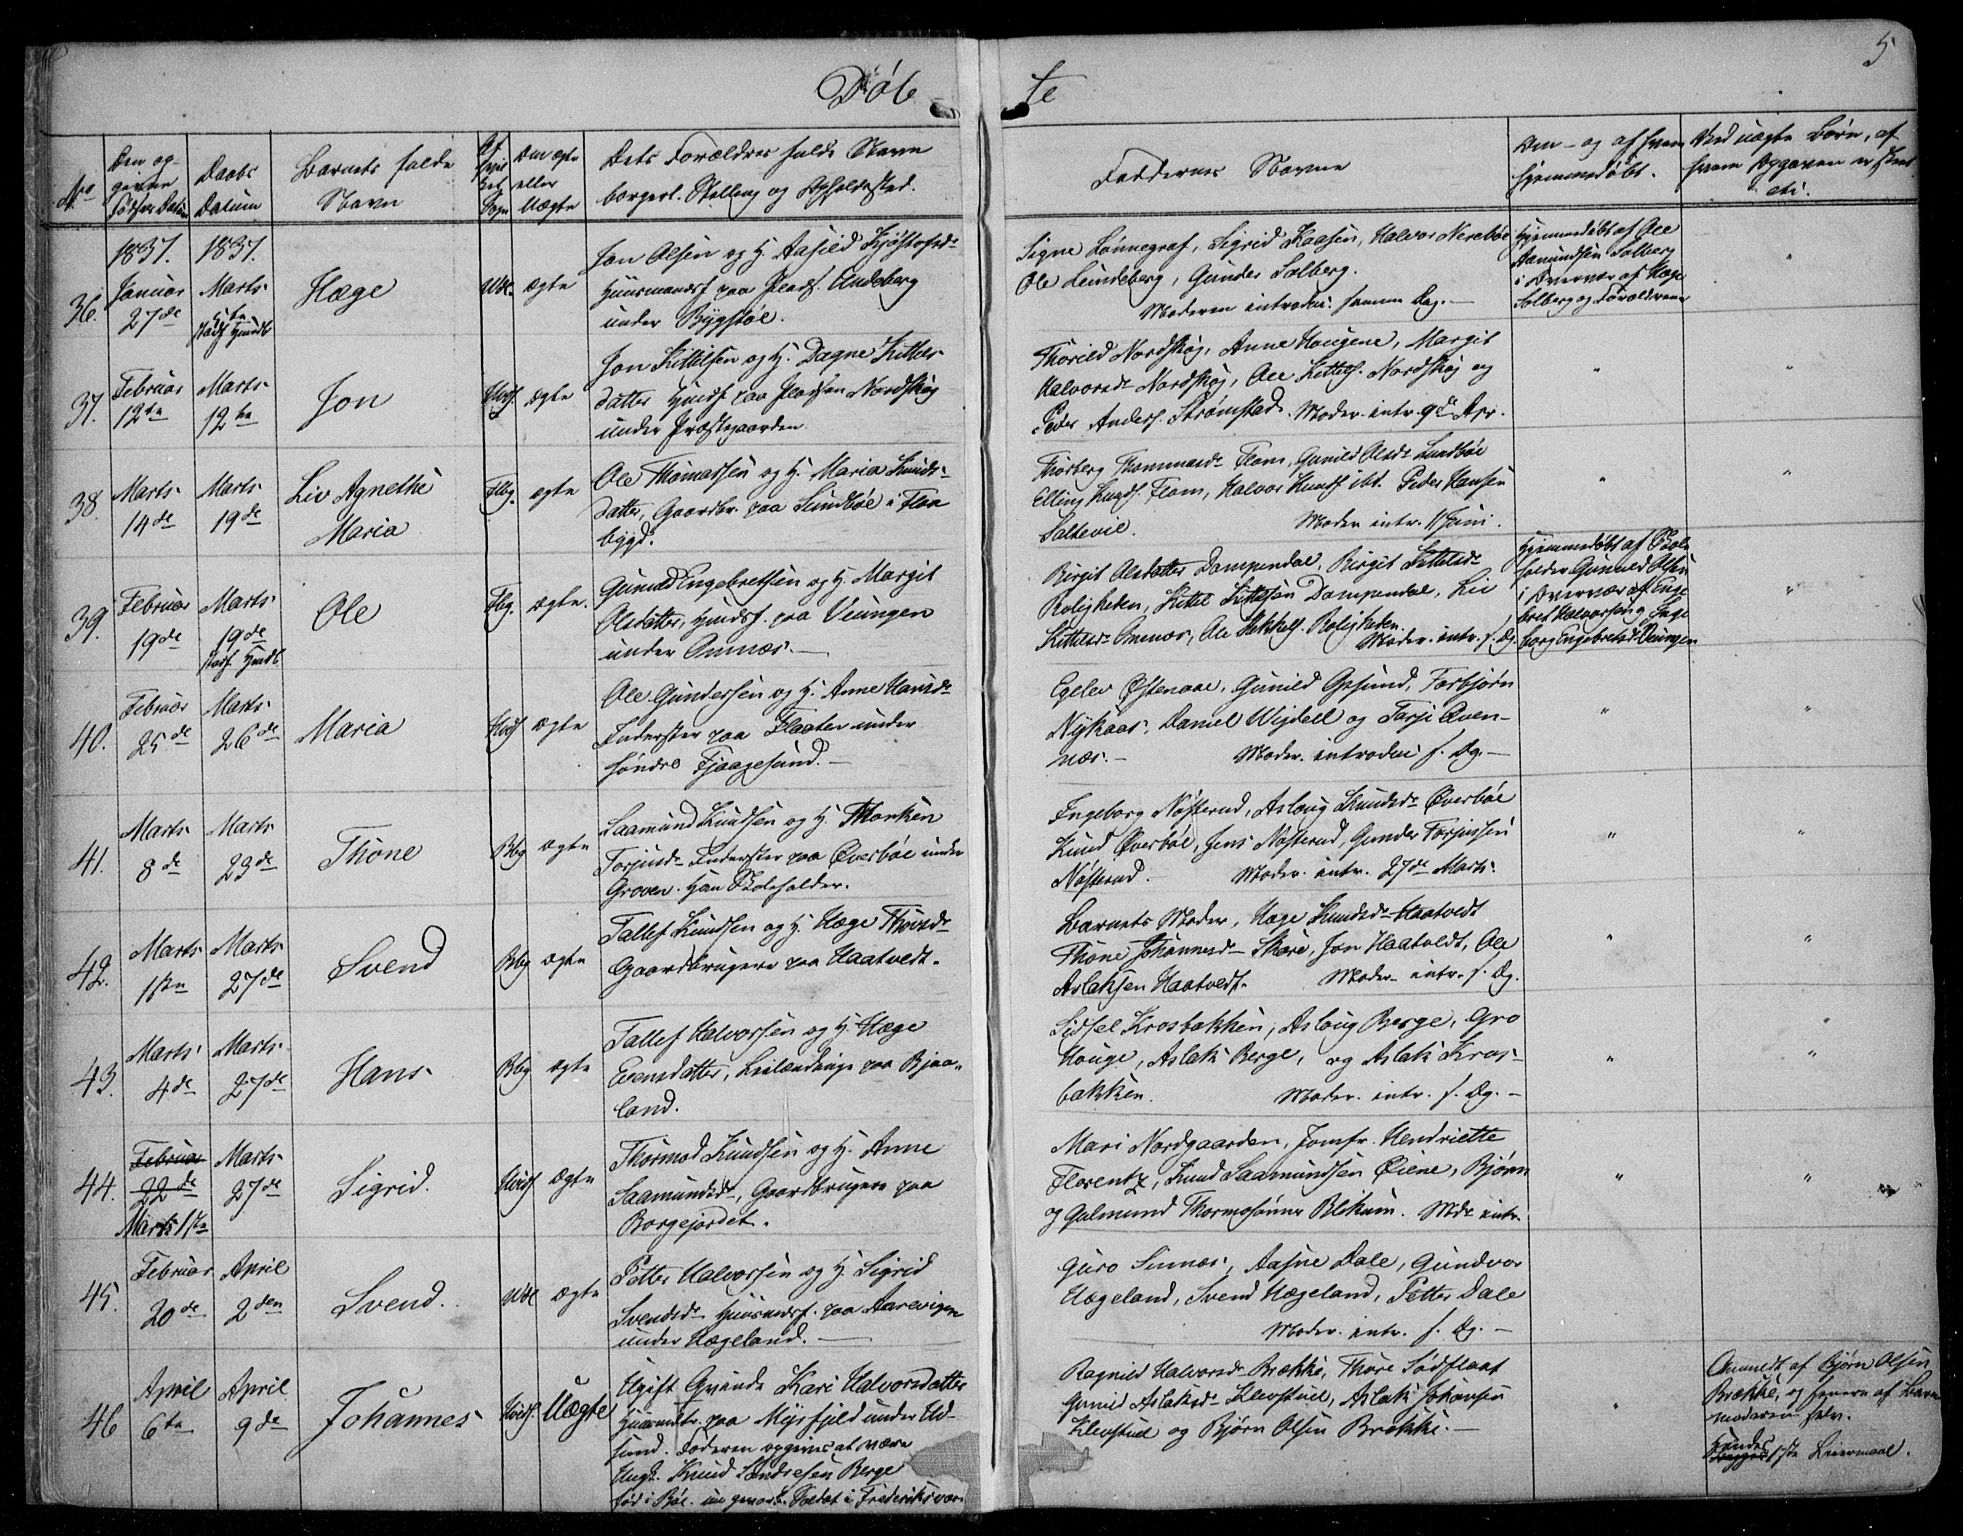 Døb - te
5
No
Den op-
givne
Fødsels Datum
Daabs
Datum
Barnets fulde
Navn
Af
hvil
ket
Sogn
Om ægte
eller
Uægte
Dets Forældres fulde Navn
borgerl. Stilling og Opholdssted.
Faddernes Navne
Om - og af hvem
hjemmedøbt.
Ved uægte Børn, af
hvem Opgaven er skeet
etc.
36.
1837.
Januar
27de
1837.
Marts
5te
Hæge
ægte
Jon Olsen og H. Aasild Kjøstolsdr
Huusmandsf. paa Pladsen Lundeberg
under Bygstøl.
Signe Lønnegraf, Sigrid Kaasen, Halvor Nereböe
Ole Lundeberg, Gunder Solberg.
Moderen introduc. samme Dag. -
Hjemmedøbt af Ole
Aamundsen Solberg
i Overvær af Hæge
Solberg og Forældrene
"
37.
Februar
12te
Marts
12te
Jon
Hvids.
ægte
Jon Kittilsen og H. Dagne Kittels
datter Hmdsf. paa Pladsen Nordskog
under Præstegaarden
Thorild Nordskog, Anne Haugene, Margit
Halvorsdr Nordskog, Ole Kittels. Nordskog og
Peder Anders. Strømstad. Moder. intr. 9de Apr.
"
"
38.
Marts
14de
Marts
19de
Liv Agnethe
Maria
Flbg.
ægte
Ole Thomassen og H. Maria Knuds-
datter, Gaardbr. paa Lundböe i Flaa
bygd.
Thorberg Thommasdr Flom, Gunild Olsdr Lundböe
Elling Knuds. Flom, Halvor Knuds. ibd. Peder Hansen
Saltevil. Moder intr. 11 Juni.
"
"
39.
Februar
19de
Marts
19de
stadf. Hmdb.
Ole
Flbg.
ægte.
Gunuld Engebretsen og H. Margit
Olsdatter, Hmdsf. paa Veungen
under Omnæs. -
Birgit Olsdatter Dampendal, Birgit Kittelsdr
Roligheden, Kittel Kittelsen Dampendal, Liv
Kittelsdr Omnæs, Ole Roligheden.
Moder. intr. s. Dg.
Hjemmedøbt af Skole
holder Gunuld Olsen
i Overvær af Enge
bret Halvorsen og Inge
borg Engebretsd. Veungen
"
40.
Februar
25de
Marts
26de
Maria
Hvids
ægte
Ole Gundersen og H. Anne Hansdr
Inderster paa Flaaten under
søndre Fjaagesund. -
Egelev Østenaae, Gunild Opsund, Torbjørn
Nykaas, Daniel Wigdell og Tarje Qven-
næs. - Moder. introduc s. Dg. -
"
"
41.
Marts
8de
Marts
23de
Thone
Bbg
ægte
Saamund Knudsen og H. Thorken
Torjusdr Inderster paa Øverböe under
Groven. Han Skoleholder.
Ingeborg Nøsterud, Aslaug Knudsdr Øverböe
Knud Øverböe, Jens Nøsterud, Gunder Torjussen
Nøsterud. Moder. intr. 27de Marts.
"
"
42.
Marts
1ste
Marts
27de
Svend
Bbg
ægte
Tallef Knudsen og H. Hæge Thorsdr
Gaardbrugere paa Haatvedt.
Barnets Moder, Hæge Knudsdr Haatvedt
Thone Johannesdr Skare, Jon Haatvedt, Ole
Aslaksen Haatvedt. Moder. intr. s. Dg.
"
"
43.
Marts
4de
Marts
27de
Hans
Bbg
ægte
Tallef Halvorsen og H. Hæge
Evensdatter, Leilændinge paa Bjaa-
land.
Sidsel Krosbakken, Aslaug Berge, Gro
Hauge, Aslak Berge, og Aslak Kros-
bakken. Moder. intr. s. Dg. -
"
"
44.
Februar
22de
Marts 1ste
Marts
27de
Sigrid.
Hvids
ægte
Thormod Knudsen og H. Anne
Saamundsdr, Gaardbrugere paa
Borgejordet.
Mari Nordgaarden, Jomfr. Hendriette
Florentz, Knud Saamundsen Øiene, Bjørn
og Galmund Thormosønner Blekum. Mdr intr.
"
"
45.
Februar
20de
April
2den
Svend.
ægte
Petter Halvorsen og H. Sigrid
Svendsdr Huusmandsf. paa Aarevigen
under Hægeland. -
Guro Sinnæs, Aasne Dale, Gundvor
Hægeland, Svend Hægeland, Petter Dale
Moder. intr. s. Dg. -
46
April
6te
April
9de
Johannes
Hvids.
Uægte
Ugift Qvinde Kari Halvorsdatter
Huusmdtr. paa Myrfjeld under Ud-
sund. Faderen opgives at være
Ungk. Knud Sondresen Berge
fød i Böe. nu gevorb. Soldat i Frederiksværn
Ragnild Halvorsdr Brække, Thore Sødflaat
Gunild Aslaksdr Klevstuel, Aslak Johansen
Klevstuel og Bjørn Olsen Brække. -
"
Anmeldt af Bjørn Olsen
Brække, og senere af Barne
moderen selv.
Hendes
Begges 1ste Leiermaal.